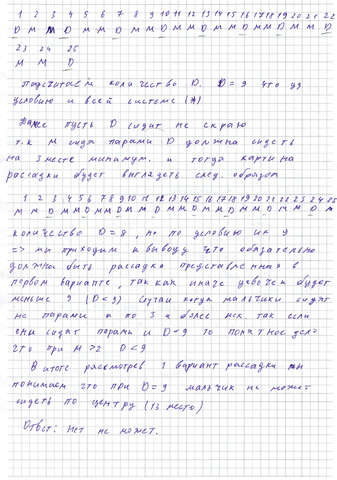 1 2 3 4 5 6 7 8 9 10 11 12 13 14 15 16 17 18 19 20 21 22
D M M D M M D M M D M M D M M D M M D M M D
23 24 25
M M D
Подсчитаем количество D. D = 9 что уд
условию и всей системе (*)
Далее пусть D сидит не скраю
т.к M сидя парами D должна сидеть
на 3 месте минимум. и тогда картина
рассадки будет выглядеть след. образом
1 2 3 4 5 6 7 8 9 10 11 12 13 14 15 16 17 18 19 20 21 22 23 24 25
M M D M M D M M D M M D M M D M M D M M D M M D M
количество D = 8, но по условию их 9
=> мы приходим к выводу что обязательно
должна быть рассадка представленная в
первом варианте, так как иначе девочек будет
меньше 9 (D < 9) Случаи когда мальчики сидят
не парами а по 3 и более так если
они сидят парами и D = 9 то понятное дело
что при M > 2 D < 9
В итоге рассмотрев 1 вариант рассадки мы
понимаем что при D = 9 мальчик не может
сидеть по центру (13 место)
Ответ: Нет не может.